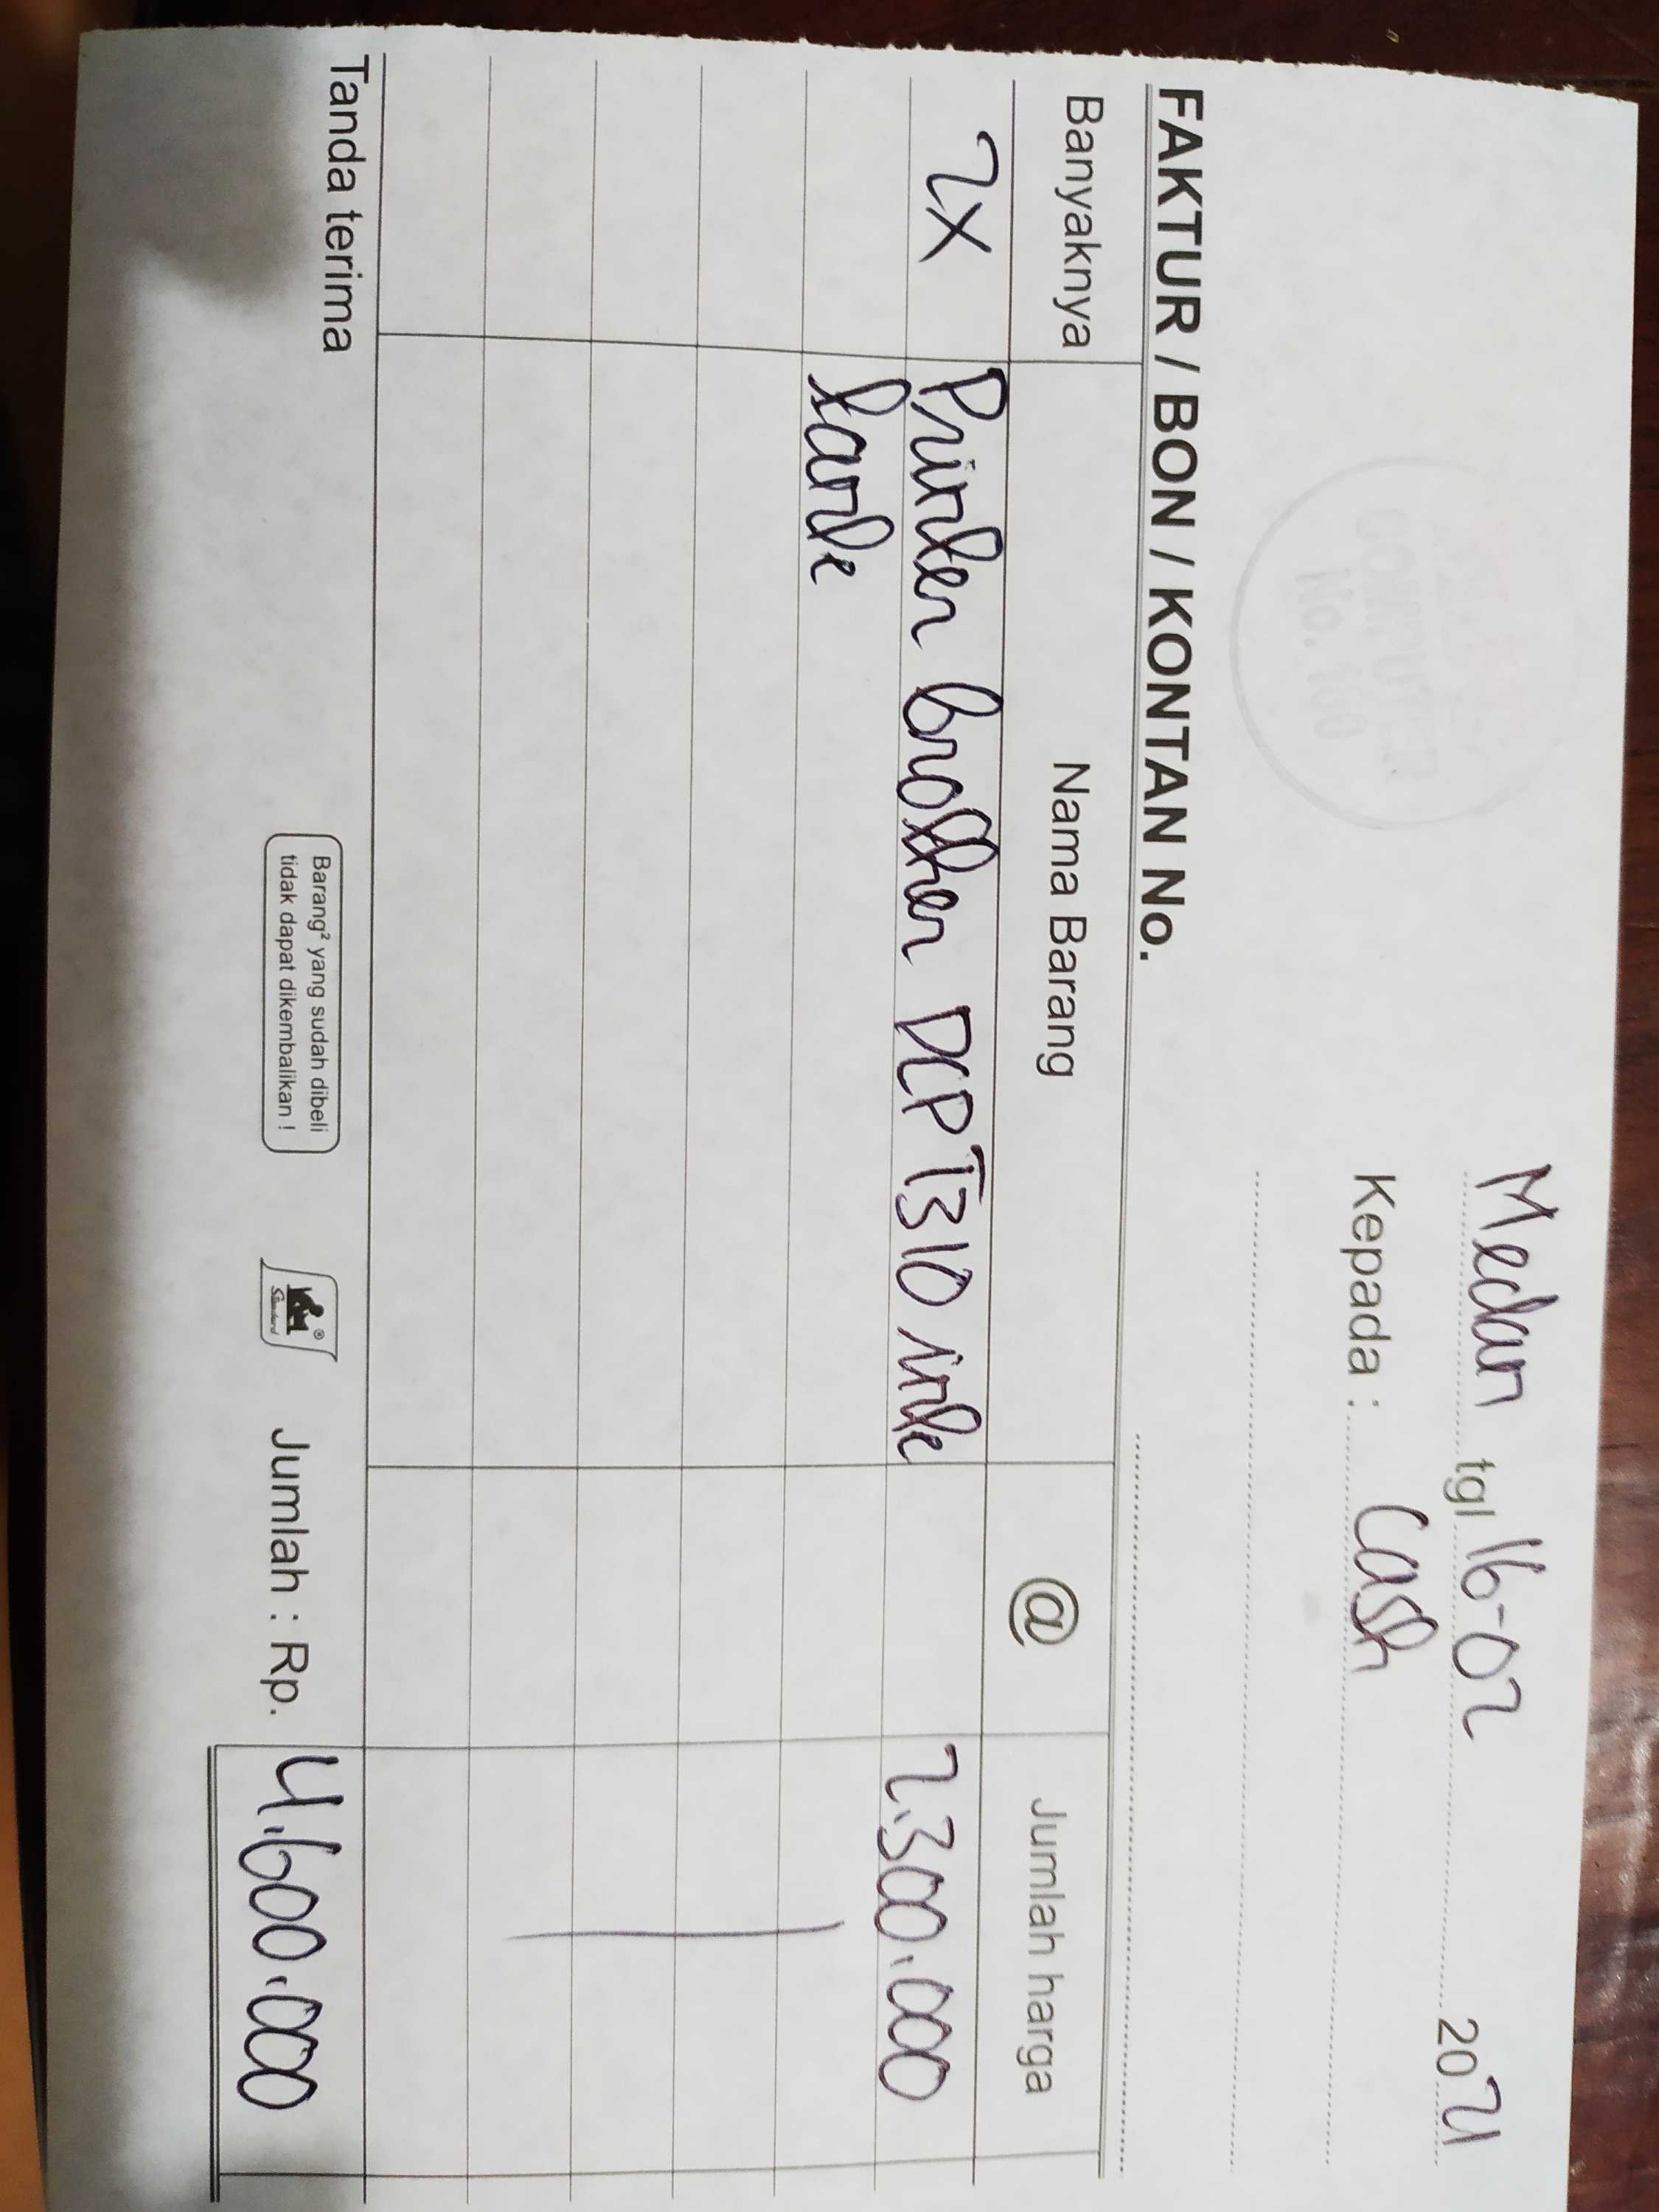 Medan tgl 16-02 2021
Kepada : Cash
COMPUTER
FAKTUR / BON / KONTAN No.
Banyaknya Nama Barang @ Jumlah harga
2X Printer brother DCP T310 ink 2.300.000
tank
Tanda terima
Barang² yang sudah dibeli
tidak dapat dikembalikan !
Standard
Jumlah : Rp. 4.600.000